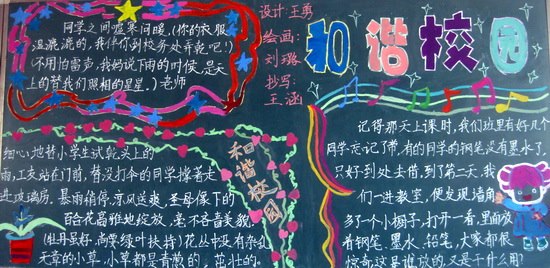 同学之间嘘寒问暖，(你的衣服
湿漉漉的，我伴你到校务处弄乾吧！)
(不用怕雷声，我妈说下雨的时候，是天
上的替我们照相的星星。)老师
细心地替小学生试乾头上的
雨，工友站在门前，替没打伞的同学撑着走
进玻璃房，暴雨稍停，凉风送爽，圣母像下的
百合花富雅地绽放，毫不吝啬美貌，
(牡丹虽好，尚要绿叶扶持)花丛中没有杂乱
无章的小草，小草都是青葱的，茁壮的。
和谐校园
设计：王勇
绘画：
刘璐
抄写：
王涵
和谐校园
记得那天上课时，我们班里有好几个
同学忘记了带，有的同学的钢笔没有墨水了，
只好到处去借，到了第二天，我
们一进教室，便发现墙角
多了一个小柜子，打开一看，里面放
着钢笔、墨水、铅笔，大家都很
惊奇这是谁放的，又是干什么用？